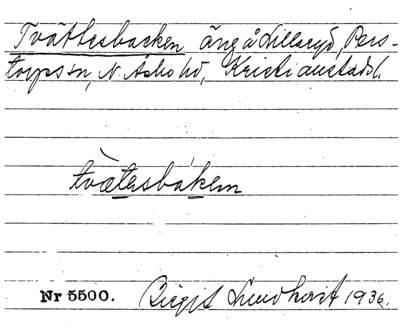 Tvättesbacken äng å Lillaryd, Pers-
torps sn, N. Åsbo hd, Kristianstads l.
tvætesbakem
Nr 5500. Birgit Lindkvist 1936.